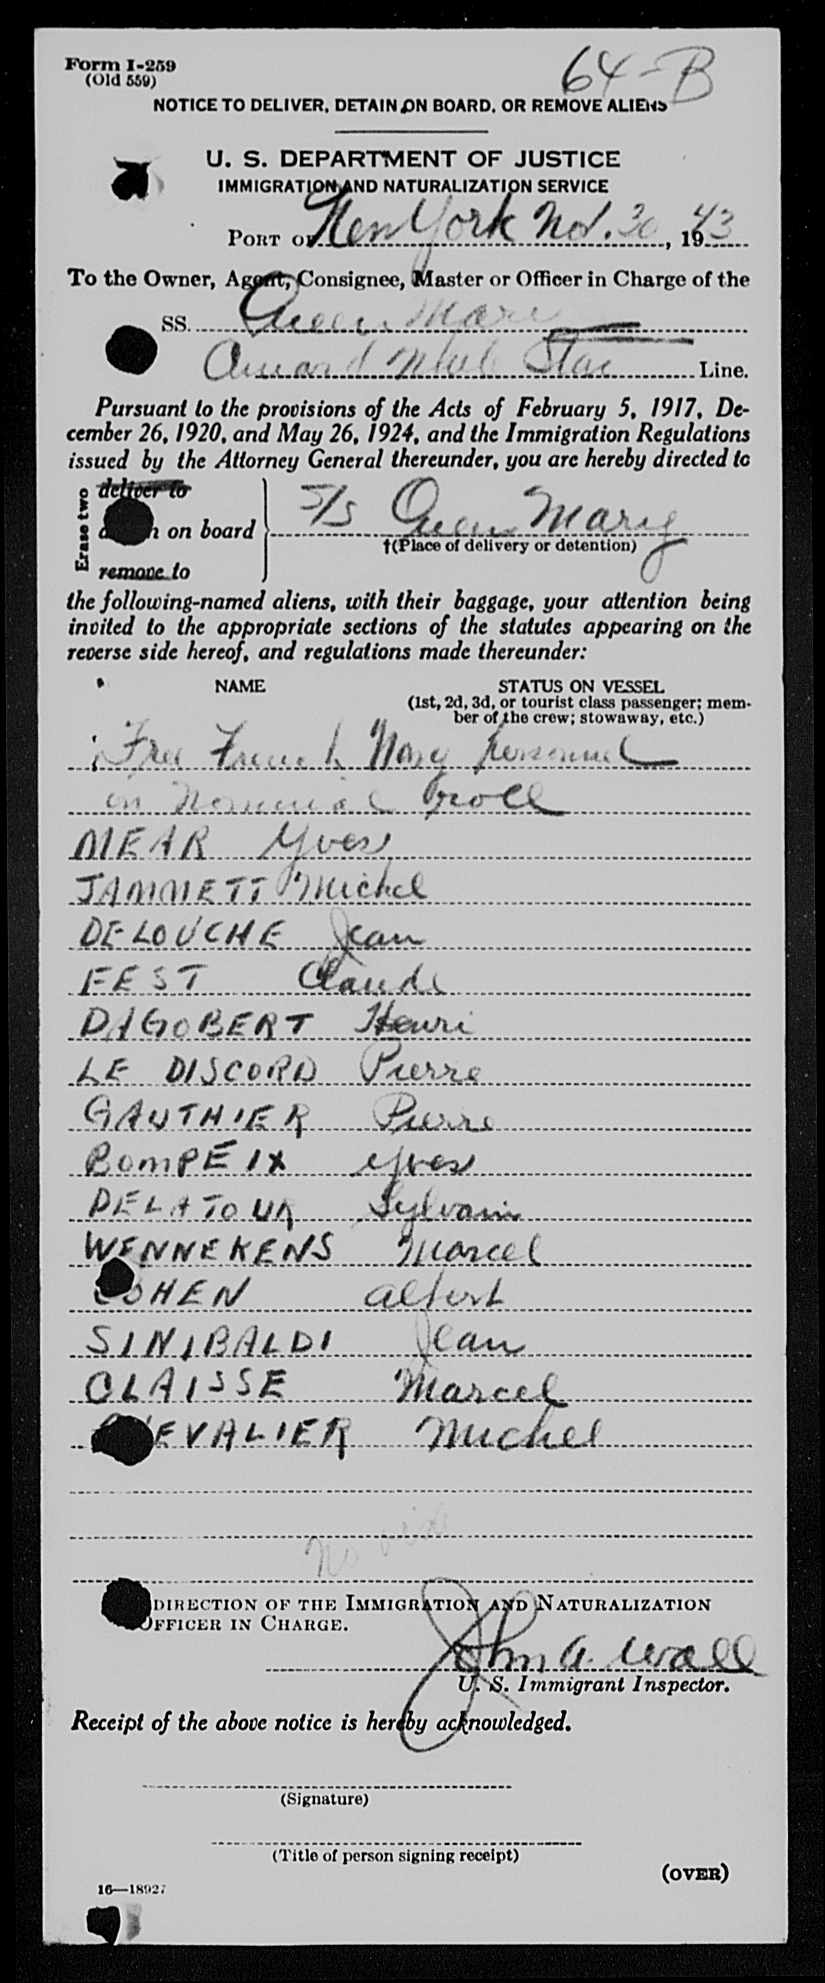 Form I-259
(Old 559)
64-B
NOTICE TO DELIVER, DETAIN ON BOARD, OR REMOVE ALIENS
U. S. DEPARTMENT OF JUSTICE
IMMIGRATION AND NATURALIZATION SERVICE
PORT OF New York Nov. 30, 1943
To the Owner, Agent, Consignee, Master or Officer in Charge of the
SS. Queen Mary
Cunard White Star Line.
Pursuant to the provisions of the Acts of February 5, 1917, De-
cember 26, 1920, and May 26, 1924, and the Immigration Regulations
issued by the Attorney General thereunder, you are hereby directed to
Erase two
deliver to
on board
remove to
S/S Queen Mary
†(Place of delivery or detention)
the following-named aliens, with their baggage, your attention being
invited to the appropriate sections of the statutes appearing on the
reverse side hereof, and regulations made thereunder:
NAME
STATUS ON VESSEL
(1st, 2d, 3d, or tourist class passenger; mem-
ber of the crew; stowaway, etc.)
Free French Navy personnel
on nominal roll
MEAR Yves
JAMMETT Michel
DELOUCHE Jean
FEST Claude
DAGOBERT Henri
LE DISCORD Pierre
GAUTHIER Pierre
BOMPEIX Yves
DELATOUR Sylvain
WENNEKENS Marcel
COHEN Albert
SINIBALDI Jean
CLAISSE Marcel
CHEVALIER Michel
No
DIRECTION OF THE IMMIGRATION AND NATURALIZATION
OFFICER IN CHARGE.
John A. Wall
U. S. Immigrant Inspector.
Receipt of the above notice is hereby acknowledged.
(Signature)
(Title of person signing receipt)
(OVER)
16—18927